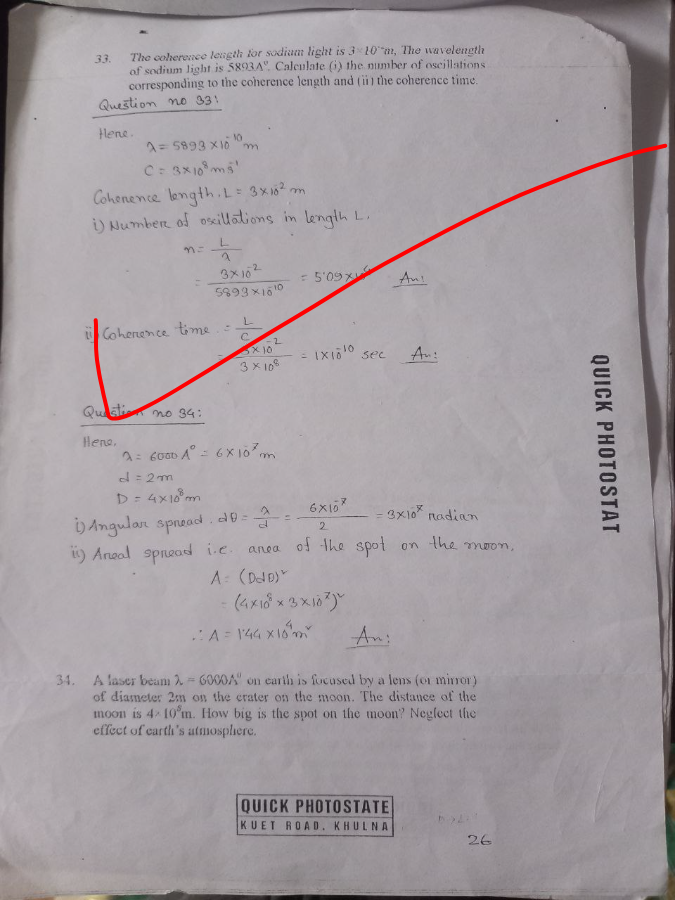 33. The coherence length for sodium light is 3×10⁻²m, The wavelength
of sodium light is 5893A°. Calculate (i) the number of oscillations
corresponding to the coherence length and (ii) the coherence time.
Question no 33:
Here,
λ = 5893 × 10⁻¹⁰ m
C = 3×10⁸ ms⁻¹
Coherence length, L = 3×10⁻² m
i) Number of oscillations in length L,
n = L/λ
= 3×10⁻² / 5893×10⁻¹⁰ = 5.09×10⁴ Ans:
ii) Coherence time = L/C
= 3×10⁻² / 3×10⁸ = 1×10⁻¹⁰ sec Ans:
Question no 34:
Here,
λ = 6000 A° = 6×10⁻⁷ m
d = 2m
D = 4×10⁸ m
i) Angular spread, dθ = λ/d = 6×10⁻⁷ / 2 = 3×10⁻⁷ radian
ii) Areal spread i.e. area of the spot on the moon,
A = (Ddθ)²
= (4×10⁸ × 3×10⁻⁷)²
∴ A = 1.44 × 10⁴ m² Ans:
34. A laser beam λ = 6000A° on earth is focused by a lens (or mirror)
of diameter 2m on the crater on the moon. The distance of the
moon is 4×10⁸m. How big is the spot on the moon? Neglect the
effect of earth's atmosphere.
QUICK PHOTOSTAT
QUICK PHOTOSTATE
KUET ROAD, KHULNA
26